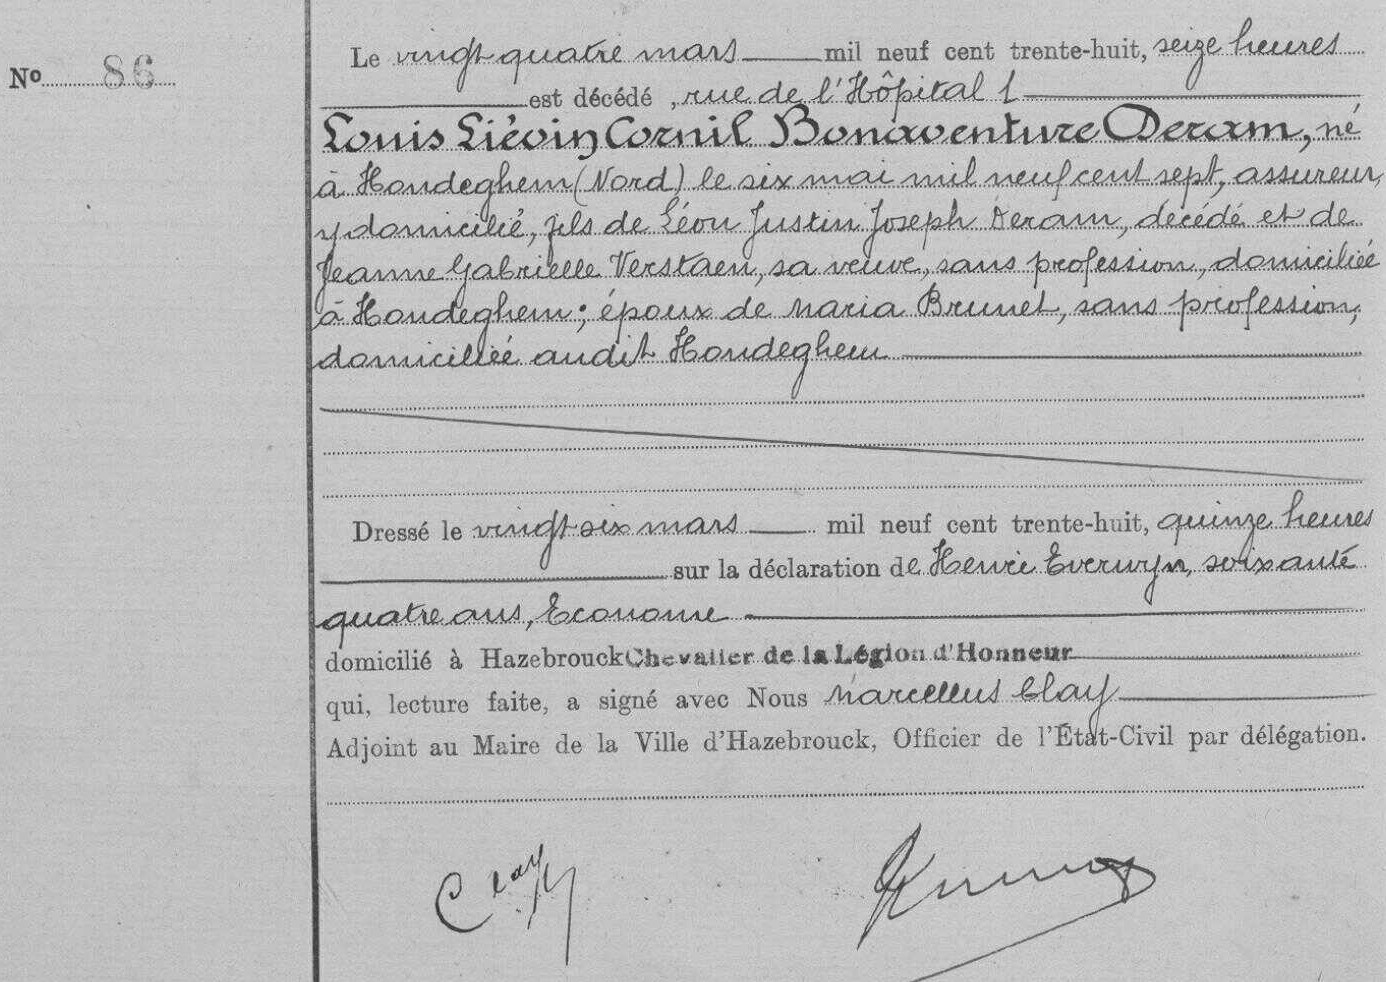 Nº 86
Le vingt quatre mars mil neuf cent trente-huit, seize heures
est décédé, rue de l'Hôpital 1
Louis Liévin Cornil Bonaventure Deram, né
à Hondeghem (Nord) le six mai mil neuf cent sept, assureur,
y domicilié, fils de Léon Justin Joseph Deram, décédé et de
Jeanne Gabrielle Verstaen, sa veuve, sans profession, domiciliée
à Hondeghem; époux de Maria Brunet, sans profession,
domiciliée audit Hondeghem
Dressé le vingt-six mars mil neuf cent trente-huit, quinze heures
sur la déclaration de Henri Everwyn, soixante
quatre ans, Econome
domicilié à Hazebrouck Chevalier de la Légion d'Honneur
qui, lecture faite, a signé avec Nous Marcellus Clay
Adjoint au Maire de la Ville d'Hazebrouck, Officier de l'État-Civil par délégation.
Clay